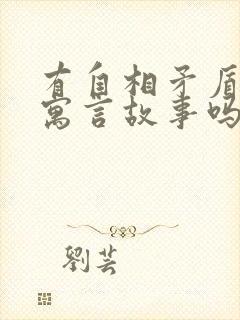 有自相矛盾
寓言故事吗
劉芸